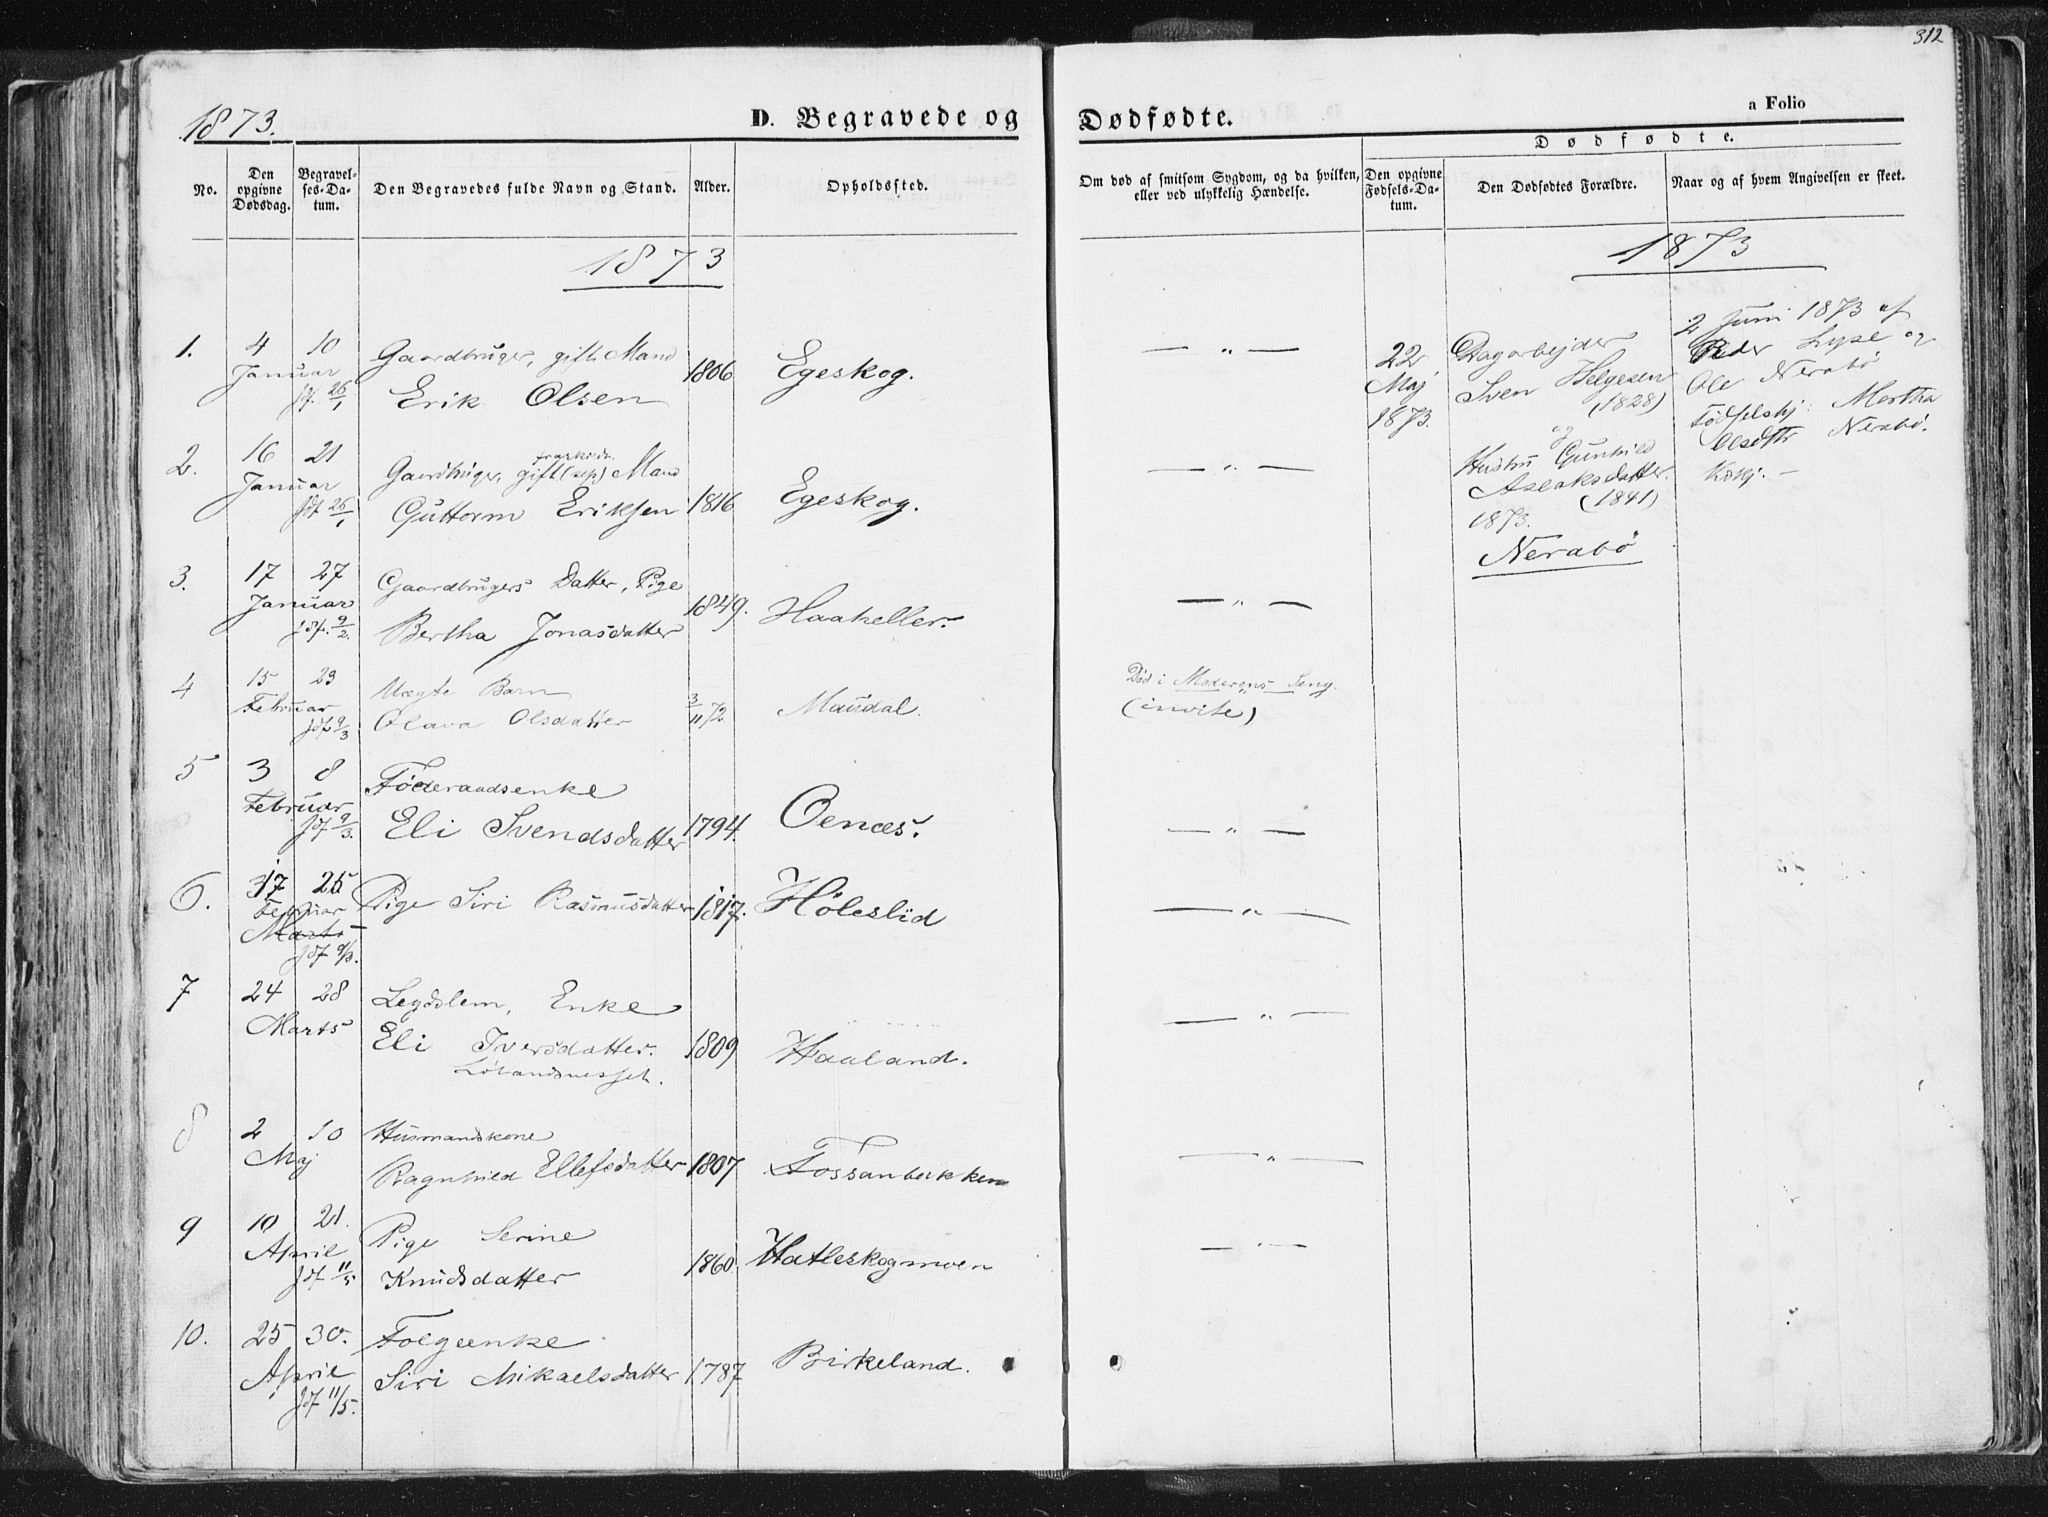 312
1873.
D. Begravede og Dødfødte.
a Folio
No.
Den opgivne Dødsdag.
Begravelses-Datum.
Den Begravedes fulde Navn og Stand.
Alder.
Opholdssted.
Om død af smitsom Sygdom, og da hvilken, eller ved ulykkelig Hændelse.
Dødfødte.
Den opgivne Fødsels-Datum.
Den Dødfødtes Forældre.
Naar og af hvem Angivelsen er skeet.
1873
1873
1. 4 10 Gaardbruger, gift Mand
Januar
jdf. 26/1 Erik Olsen 1806 Egeskog. — " —
2. 16 21 Gaardbruger, gift (sep) Mand
fraskildt
Januar
jdf 26/1 Guttorm Eriksen 1816 Egeskog. — " —
3. 17 27 Gaardbrugers Datter, Pige
Januar
jdf. 9/2. Bertha Jonasdatter 1849. Haaheller. — " —
4 15 23 Uægte Barn
Februar
jdf 9/3 Olava Olsdatter 3/11 72 Maudal.
Død i Moderens Seng.
(invite)
5 3 8 Føderaadsenke
Februar
jdf 9/3. Eli Svendsdatter 1794. Oenæs. — " —
6. 17 25 Pige Siri Rasmusdatter 1817. Høleslid — " —
Februar
Marts
jdf 9/3.
7 24 28 Legdslem, Enke
Marts Eli Iversdatter. 1809 Haaland. — " —
8 2 10 Husmandskone
Maj Ragnhild Ellefsdatter 1807 Fossanbakken — " —
9 10 21. Pige Serine
April
jdf 11/5 Knudsdatter 1860. Hatleskogmoen — " —
10. 25 30. Folgeenke
April Siri Mikaelsdatter 1787 Birkeland.
jdf 11/5.
22
Maj
1873.
Dagarbejder
Sven Helgesen
(1828)
og
Hustru Gunhild
Aslaksdatter.
(1841)
1873.
Nerabø
2 Juni 1873 af
Peder Lyse og
Ole Nerabø
Fødselshj: Martha
Olsdttr Nerabø.